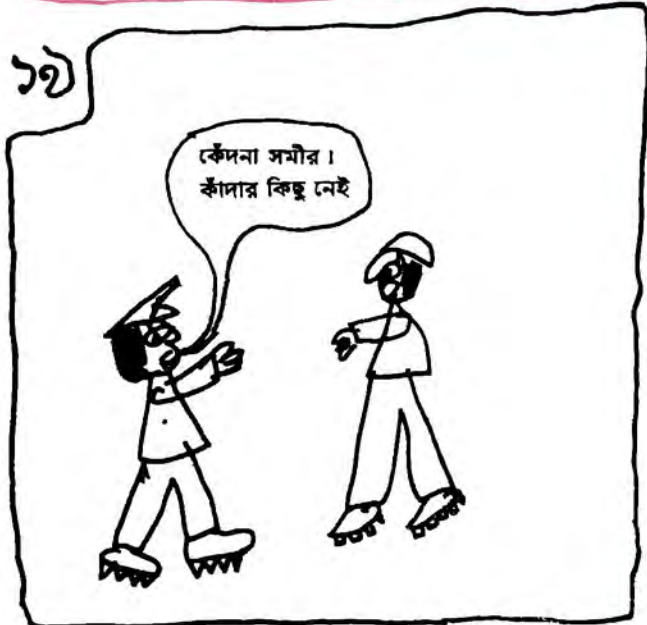 ১৭
কেঁদনা সমীর।
কাঁদার কিছু নেই